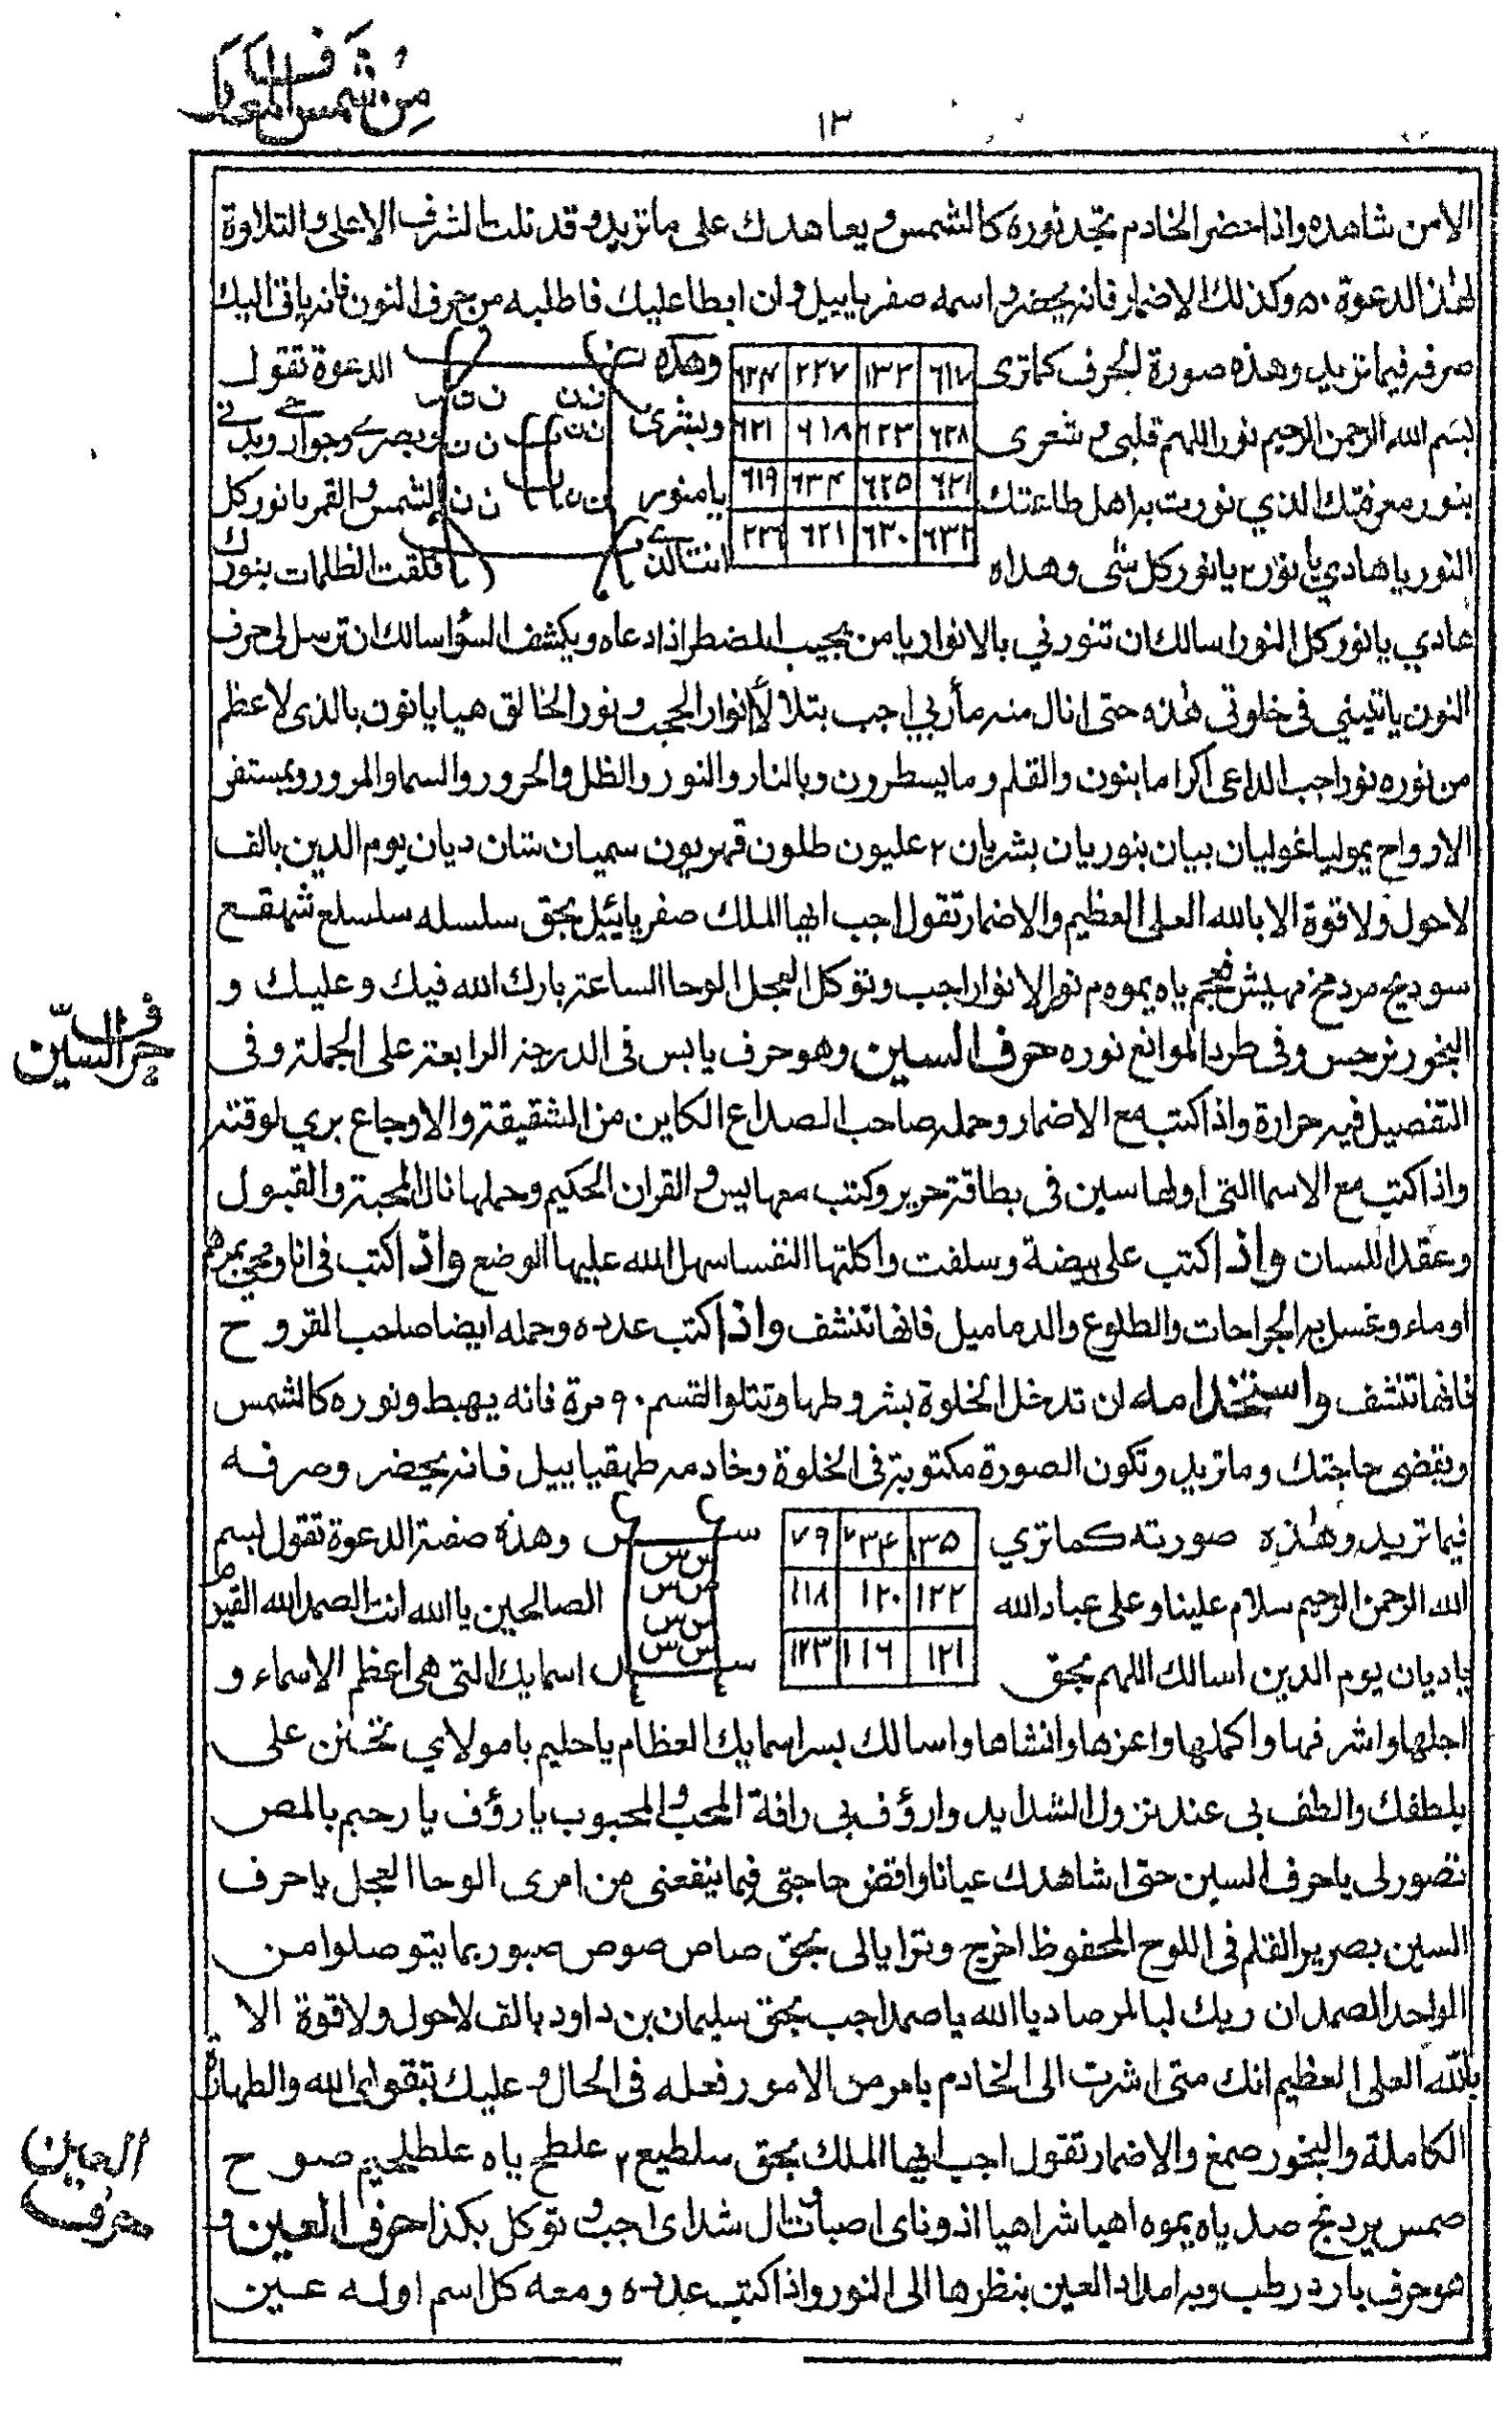 من شمس المعارف
١٣
الا من شاهده واذا حضر الخادم تجد نوره كالشمس ويعاهدك على ما تريد وقد نلت الشرف الاعلى والتلاوة
لهذا الدعوة ٥٠ وكذلك الاضمار فانه يحضر واسمه صفرياييل وان ابطا عليك فاطلبه من حرف النون فانه ياتى اليك
صرفه فيما تريد وهذه صورة الحرف كما ترى
وهذه
الدعوة تقول
٦١٧ ١٣٢ ٢٢٧ ٦٢٤
بسم الله الرحمن الرحيم نور اللهم قلبى وشعرى
وبشرى
وبصرى وجوارحى وبدنى
٦٢٨ ٦٢٣ ٦١٨ ٦٢١
بنور معرفتك الذي نورت به اهل طاعتك
يا منور
الشمس والقمر يا نور كل
٦٢١ ٦٢٥ ٦٣٤ ٦١٩
النور يا هادي يا نور ٢ يا نور كل شى وهداه
انت الذى
فلقت الظلمات بنورك
٦٣٢ ٦٣٠ ٦٢١ ٢٢٦
ن ن ن ن ن ن
يا نور كل النور اسالك ان تنورني بالانوار يا من يجيب المضطر اذا دعاه ويكشف السؤ اسالك ان ترسل لى حرف
النون ياتيني فى خلوتى هذه حتى انال منه مأربي اجب بتلالأ انوار الحجب ونور الخالق هيا يا نون بالذى لا عظم
من نوره نور اجب الداعى اكراما بنون والقلم وما يسطرون وبالنار والنور والظل والحرور والسما والمرور وبمستفر
الارواح يموليا غوليان بيان بنوريان بشريان ٢ عليون طلون قهريون سميان شان ديان يوم الدين بالف
لا حول ولا قوة الا بالله العلى العظيم والاضمار تقول اجب ايها الملك صفرياييل بحق سلسله سلسلع شهقع
ياه يموه م نور الانوار اجب وتوكل العجل الوحا الساعة بارك الله فيك وعليك و
البخور نرجس وفى طرد الموانع نوره حرف السين وهو حرف يابس فى الدرجة الرابعة على الجملة وفى
حرف السين
التفصيل فيه حرارة واذا كتب مع الاضمار وحمله صاحب الصداع الكاين من الشقيقة والاوجاع بري لوقته
واذا كتب مع الاسما التى اولها سين فى بطاقة حرير وكتب معها يس والقران الحكيم وحملها نال المحبة والقبول
وعقد اللسان واذا كتب على بيضة وسلفت واكلتها النفسا سهل الله عليها الوضع واذا كتب فى انا ومحى بمرهم
او ماء وغسل به الجراحات والطلوع والدماميل فانها تنشف واذا كتب عدده وحمله ايضا صاحب القروح
فانها تنشف واستخدامه ان تدخل الخلوة بشروطها وتتلو القسم ٩٠ مرة فانه يهبط ونوره كالشمس
ويقضى حاجتك وما تريد وتكون الصورة مكتوبة فى الخلوة وخادمه طهقياييل فانه يحضر وصرفه
فيما تريد وهذه صورته كما تري
وهذه صفة الدعوة تقول بسم
١٣٥ ٧٣٤ ٧٩
الله الرحمن الرحيم سلام علينا وعلى عباد الله
الصالحين يا الله انت الصمد الله القيوم
١٢٢ ١٢٠ ١١٨
يا ديان يوم الدين اسالك اللهم بحق
اسمايك التى هى اعظم الاسماء و
١٢١ ١١٦ ١٢٣
س س
س س
س س
س س
اجلها واشرفها واكملها واعزها وانشاها واسالك بسر اسمايك العظام يا حليم يا مولاي تحنن على
بلطفك والطف بى عند نزول الشدايد وارؤف بى رافة المحب والمحبوب يا رؤف يا رحيم بالمص
تصور لى يا حرف السين حتى اشاهدك عيانا واقض حاجتى فيما ينفعنى من امرى الوحا العجل يا حرف
السين بصرير القلم فى اللوح المحفوظ اخرج وترايا لى بحق صاص صوص صبور بما يتوصلوا من
الواحد الصمد ان ربك لبالمرصاد يا الله يا صمد اجب بحق سليمان بن داود بالف لا حول ولا قوة الا
بالله العلى العظيم انك متى اشرت الى الخادم بامر من الامور فعله فى الحال وعليك بتقوى الله والطهارة
الكاملة والبخور صمغ والاضمار تقول اجب ايها الملك بحق سلطيع ٢ علطح ياه صوح
العين
حرف
صد ياه يموه اهيا شراهيا ادوناى اصباوت ال شداى اجب وتوكل بكذا حرف العين و
هو حرف بارد رطب وبه امداد العين بنظرها الى النور واذا كتب عدده ومعه كل اسم اوله عين